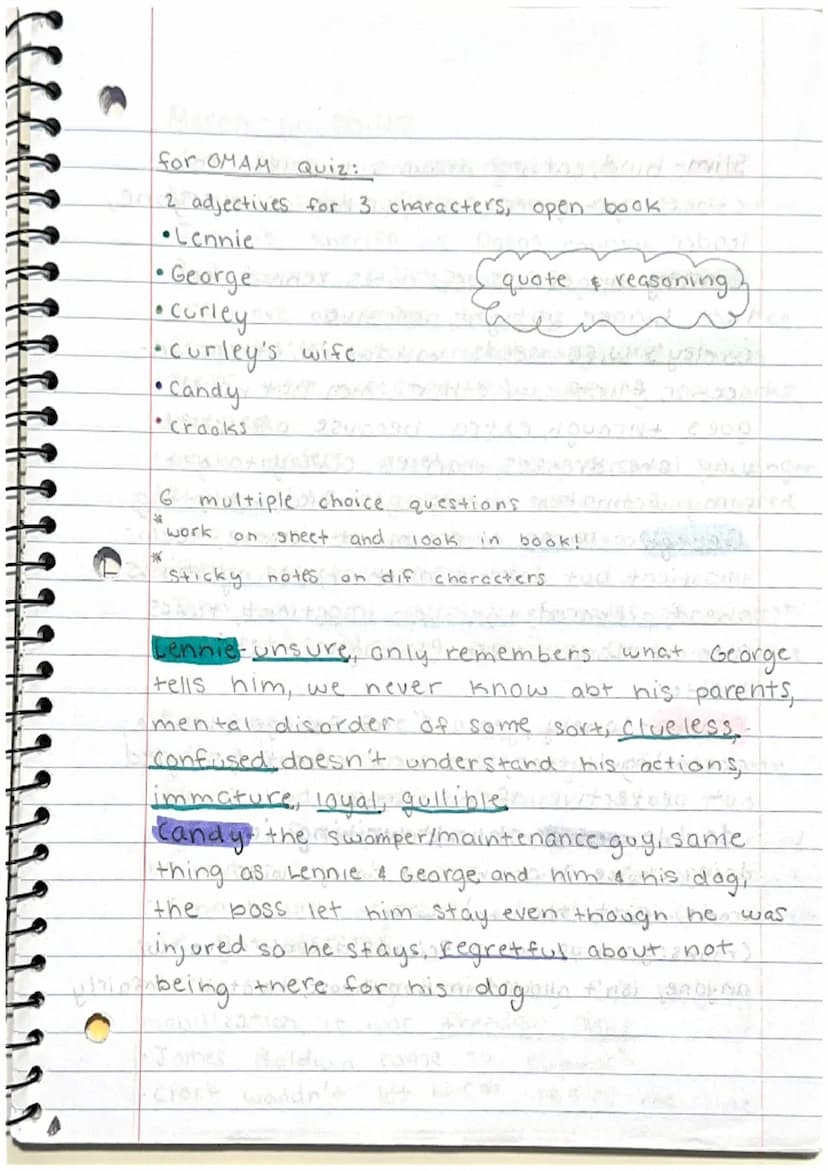 for OMAM Quiz:
2 adjectives for 3 characters, open book
• Lennie
• George
quote & reasoning
• Curley
• Curley's wife
• Candy
• Crooks
6 multiple choice questions
* work on sheet and look in book!
* sticky notes on dif characters
Lennie - unsure, only remembers what George
tells him, we never know abt his parents,
mental disorder of some sort, clueless,
confused, doesn't understand his actions,
immature, loyal, gullible
Candy - the swomper/maintenance guy, same
thing as Lennie & George and him & his dog,
the boss let him stay even though he was
injured so he stays, regretful about not
being there for his dog